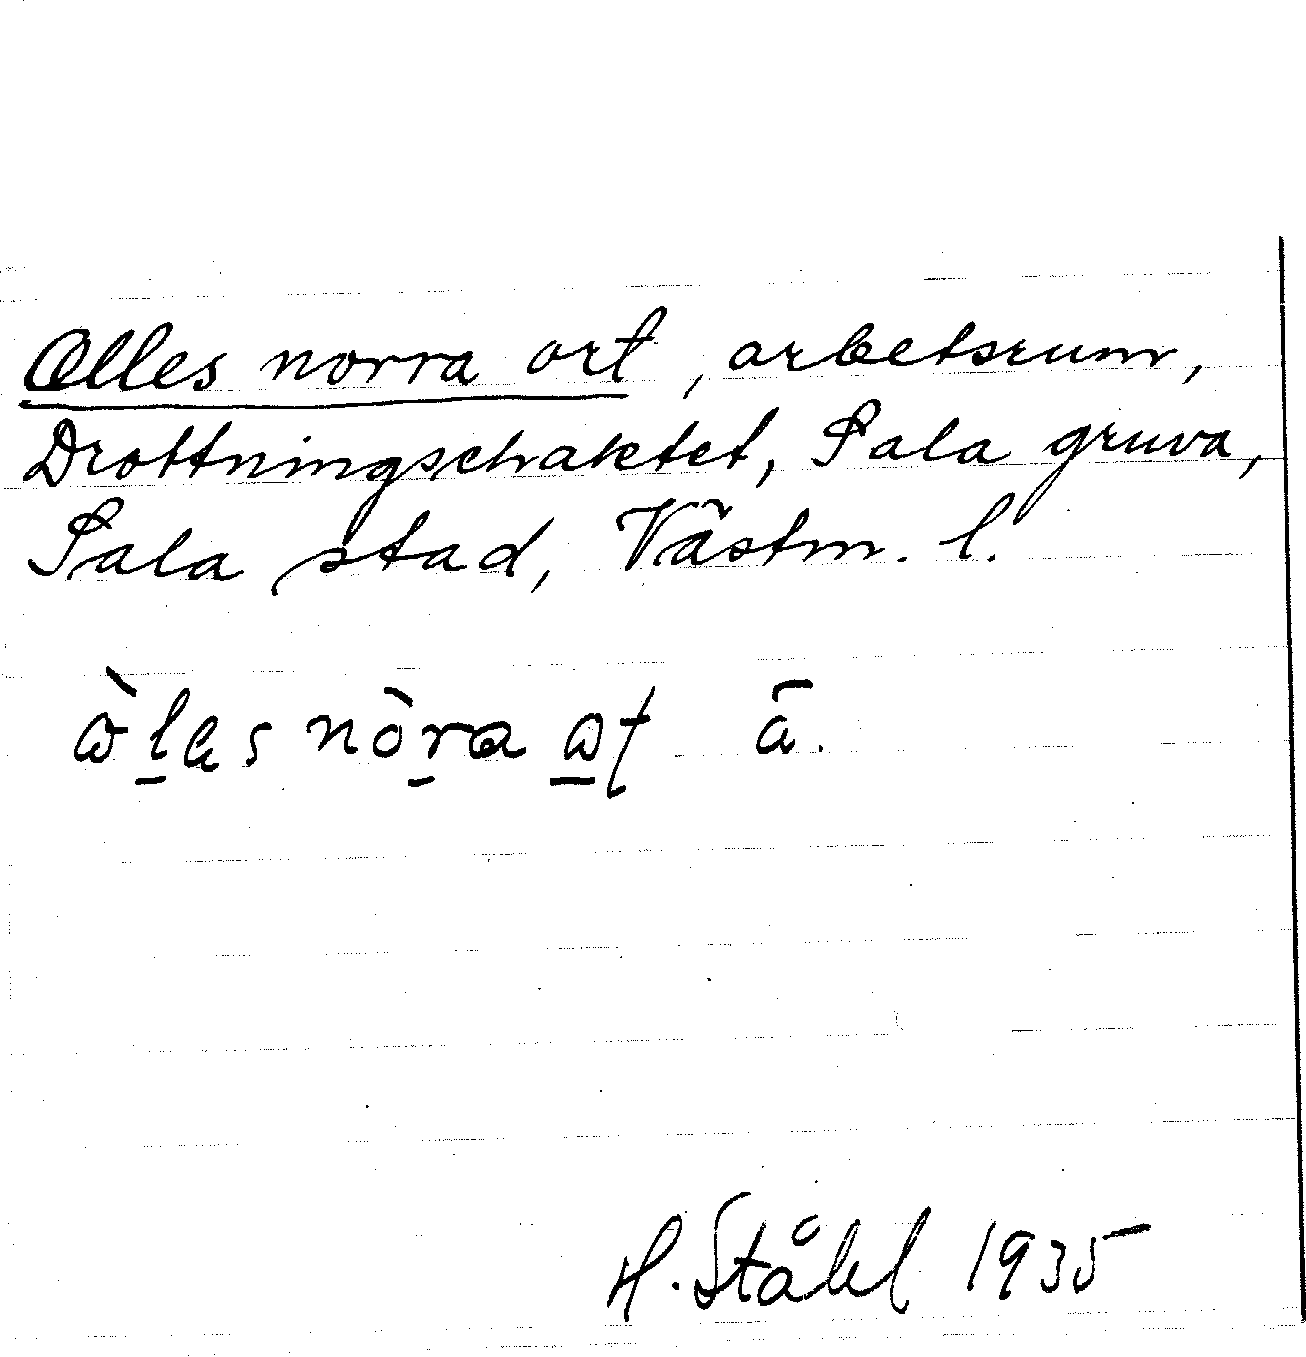 Olles norra ort, arbetsrum,
Drottningschaktet, Sala gruva,
Sala stad, Västm. l.
H. Ståhl 1935